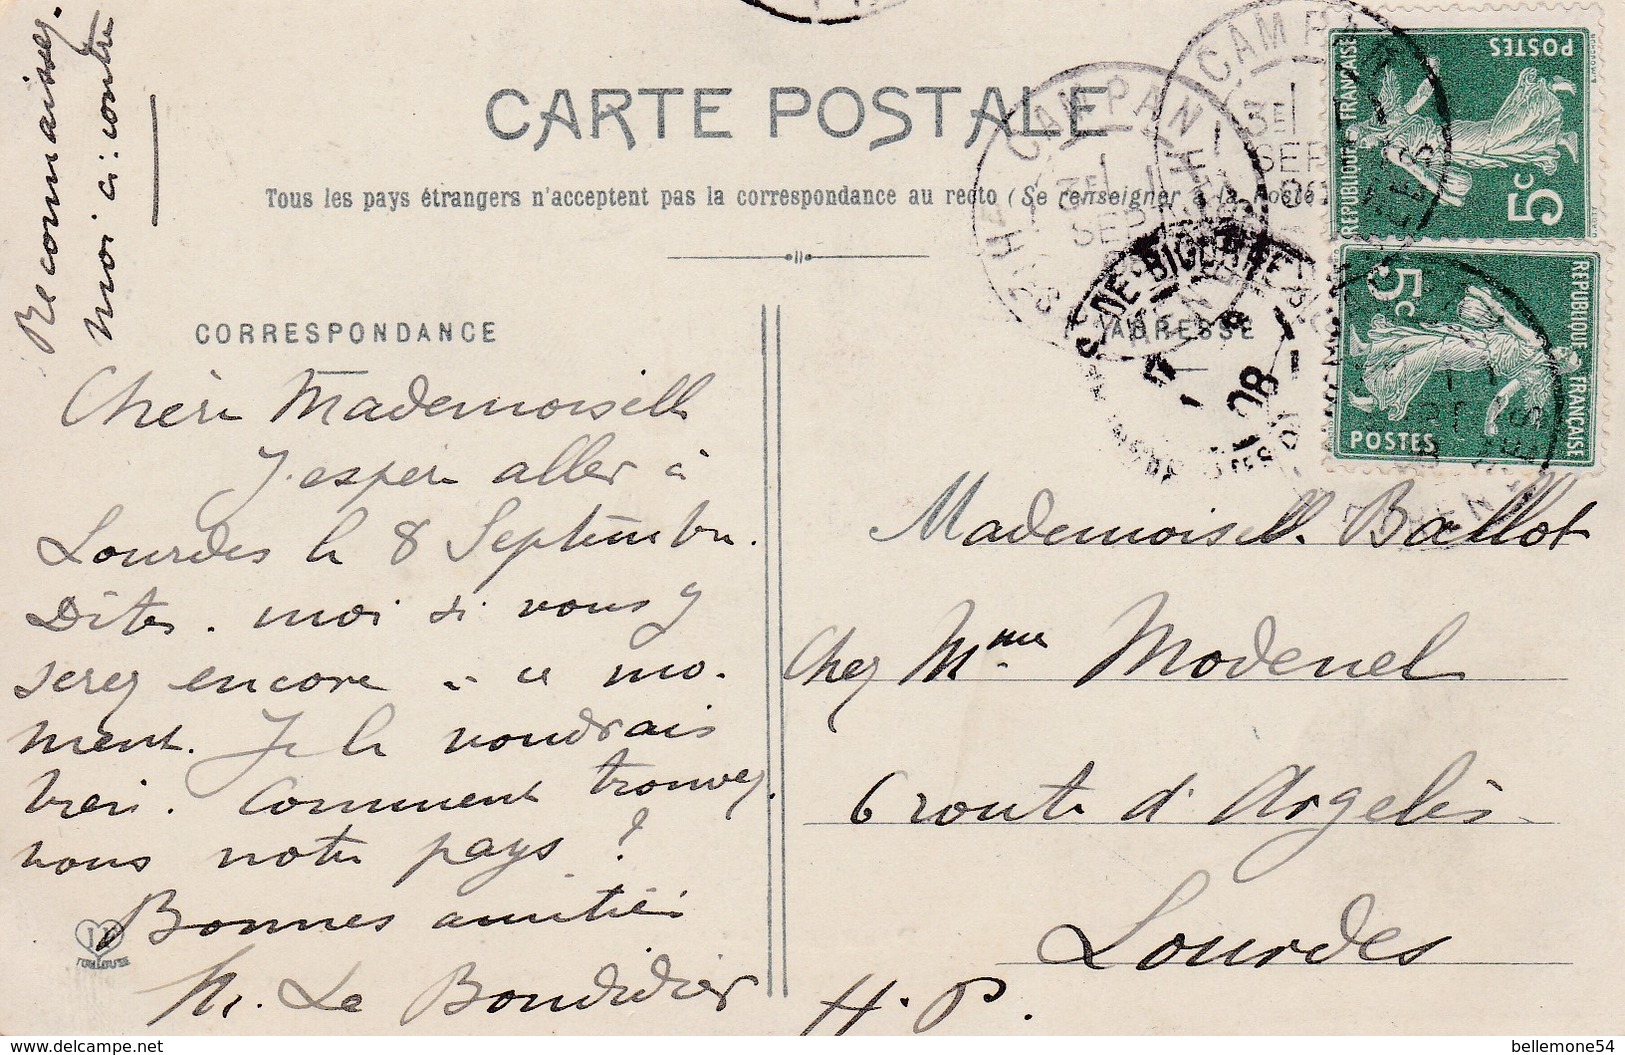 Reconnaissez-
moi ci-contre
CARTE POSTALE
Tous les pays étrangers n'acceptent pas la correspondance au recto (Se renseigner à la Poste)
CORRESPONDANCE
ADRESSE
Chère Mademoiselle
J'espère aller à
Lourdes le 8 Septembre.
Dites-moi si vous y
serez encore à ce mo-
ment. Je le voudrais
bien. Comment trouvez
vous notre pays ?
Bonnes amitiés
M. Le Bondidier
TOULOUSE
Mademoiselle Ballot
Chez Mme Modenel
6 route d'Argelès
Lourdes
H. P.
CAMPAN
3E
SEP
HTES PYRENEES
CAMPAN
3E
SEP
08
BIGORRE
08
REPUBLIQUE FRANÇAISE
POSTES
5c
REPUBLIQUE FRANÇAISE
POSTES
5c
https://www.delcampe.net
bellemone54